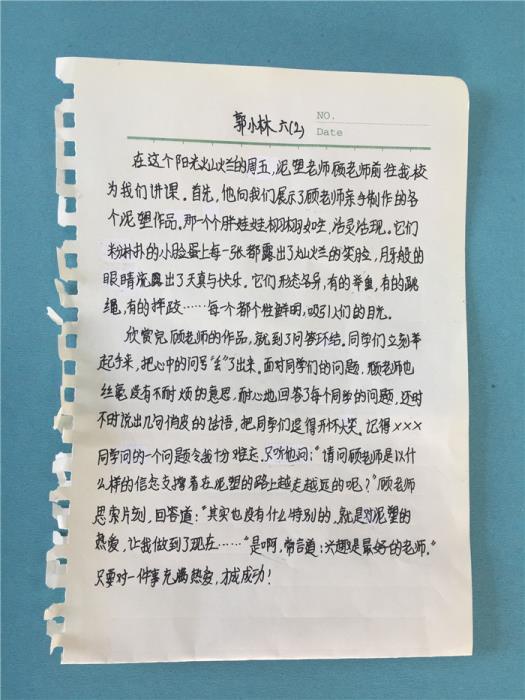 NO.
郭小林 六(2)
Date
在这个阳光灿烂的周五,泥塑老师顾老师前往我校
为我们讲课。首先,他向我们展示了顾老师亲手制作的各
个泥塑作品。那一个个胖娃娃栩栩如生,活灵活现。它们
粉扑扑的小脸蛋上每一张都露出了灿烂的笑脸,月牙般的
眼睛流露出了天真与快乐。它们形态各异,有的举重,有的跳
绳,有的摔跤……每一个都个性鲜明,吸引人们的目光。
欣赏完顾老师的作品,就到了问答环结。同学们立刻举
起手来,把心中的问号“丢”了出来。面对同学们的问题,顾老师也
丝毫没有不耐烦的意思,耐心地回答了每个同学的问题,还时
不时说出几句俏皮的话语,把同学们逗得开怀大笑。记得×××
同学问的一个问题令我十分难忘。只听他问:“请问顾老师是以什
么样的信念支撑着在泥塑的路上越走越远的呢?”顾老师
思索片刻,回答道:“其实也没有什么特别的,就是对泥塑的
热爱,让我做到了现在……”是啊,常言道:兴趣是最好的老师。”
只要对一件事充满热爱,才成成功!